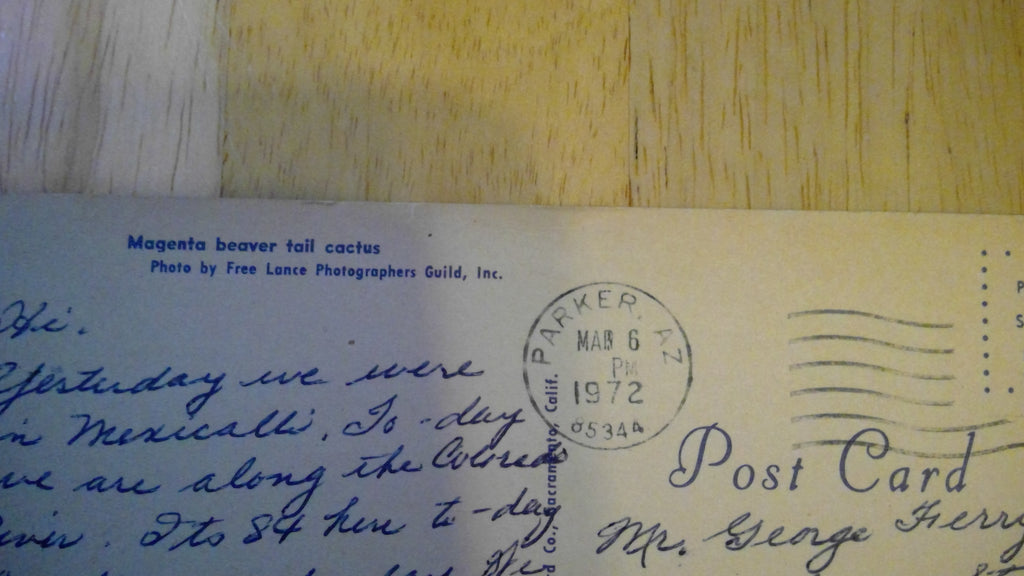 Magenta beaver tail cactus
Photo by Free Lance Photographers Guild, Inc.
Hi.
Yesterday we were
in Mexicalli. To-day
we are along the Colorado
River. Its 84 here to-day
We
PARKER, AZ
MAR 6
PM
1972
85344
Co., Sacramento, Calif.
Post Card
Mr. George Fierry